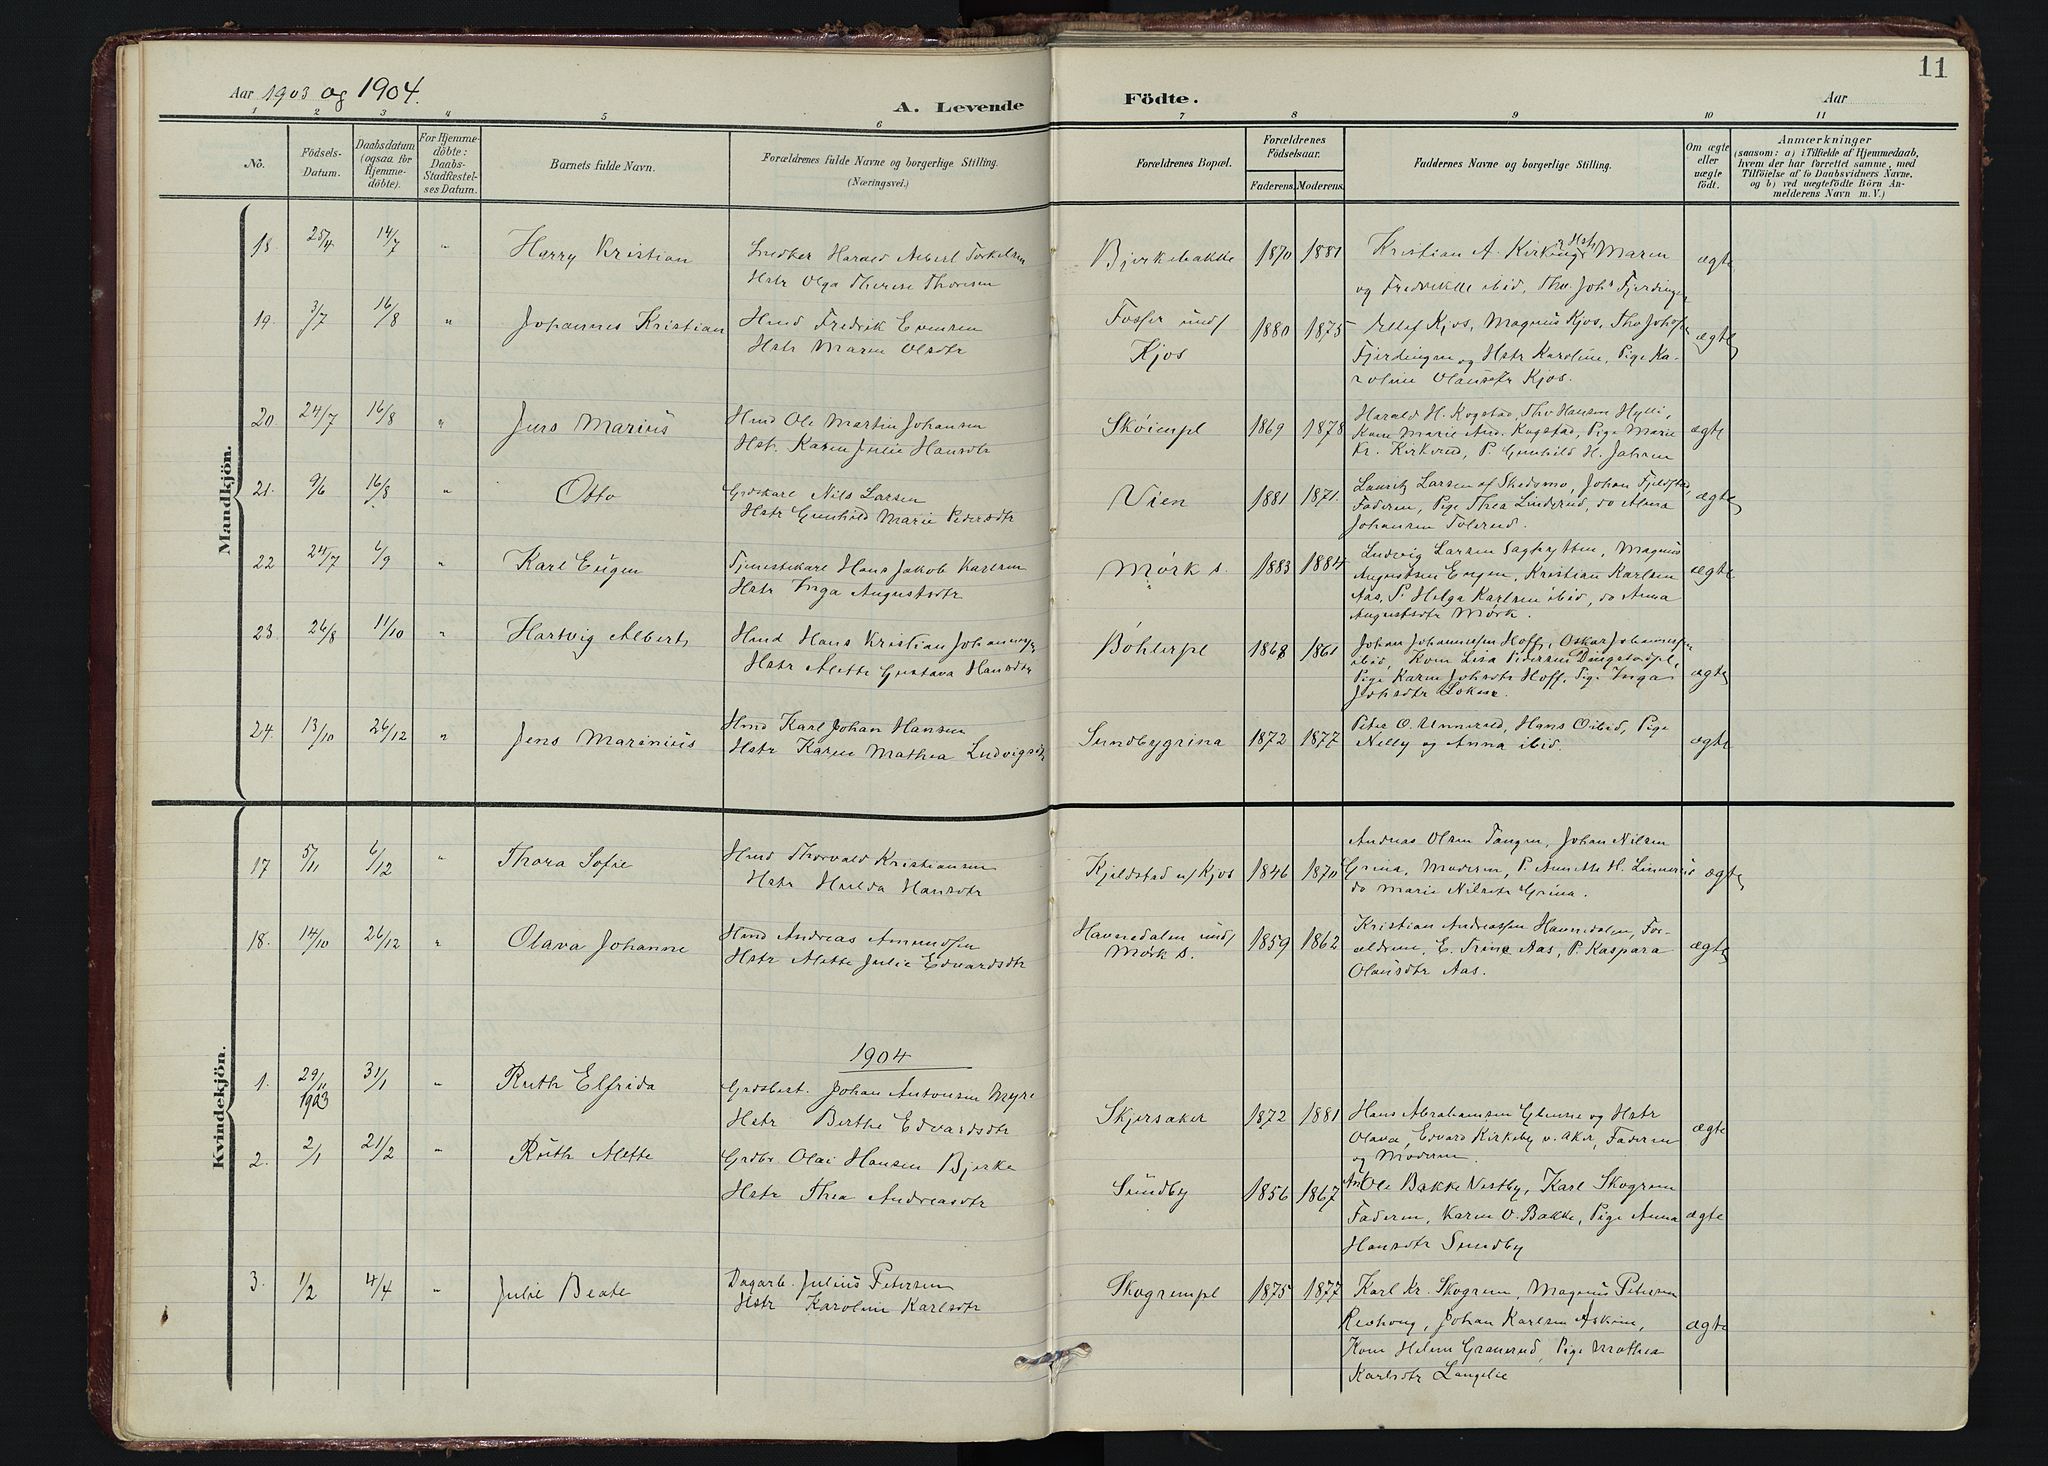 11
Aar 1903 og 1904.
A. Levende Födte.
Aar
1 2 3 4 5 6 7 8 9 10 11
No.
Födsels-Datum.
Daabsdatum (ogsaa for Hjemmedöbte).
For Hjemmedöbte: Daabs-Stadfæstelses Datum.
Barnets fulde Navn.
Forældrenes fulde Navne og borgerlige Stilling.
(Næringsvei.)
Forældrenes Bopæl.
Forældrenes Födselsaar.
Faderens. Moderens.
Faddernes Navne og borgerlige Stilling.
Om ægte eller uægte födt.
Anmærkninger
(saasom: a) i Tilfælde af Hjemmedaab,
hvem der har forrettet samme, med
Tilföielse af to Daabsvidners Navne.
og b) ved uægtefödte Börn An-
melderens Navn m. V.)
Mandkjön.
18. 25/4 14/7 " Harry Kristian Snedker Harald Albert Torkelsen Bjerkebakke 1870 1881 Kristian A. Kirkeng, Hstr Maren ægte
Hstr Olga Therese Thoresen og Fredrikke ibid, Tho. Johs Fjerdingen
19. 3/7 16/8 " Johannes Kristian Hmd Fredrik Evensen Fosser und/ 1880 1875 Kjos, Magnus Kjos, Tho Johs ægte
Hstr Maren Olsdtr Kjos Fjerdingen og Hstr Karoline, Pige Ka-
roline Olausdtr Kjos.
20 24/7 16/8 " Jens Marius Hmd Ole Martin Johansen Skøienpl 1869 1878 Harald H. Kogstad, Tho Hansen Hylli, ægte
Hst. Karen Julie Hansdtr Kone Marie And. Kogstad, Pige Marie
Kr. Kirkerud, P. Gunhild H. Jahren
21. 9/6 16/8 " Otto Grdskarl Nils Larsen Vien 1881 1871. Lauritz Larsen af Skedsmo, Johan Fjeldstad, ægte
Hstr Gunhild Marie Pedersdtr Faderen, Pige Thea Linderud, do Alma
Johansen Tolerud.
22 24/7 6/9 " Karl Eugen Tjenestekarl Hans Jakob Karlsen Mørk s. 1883 1884 Ludvig Larsen Saghytten, Magnus ægte
Hstr Inga Augustsdtr Augustsen Engen, Kristian Karlsen
Aas, P. Helga Karlsen ibid, do Anna
Augustsdtr Mørk.
23 26/8 11/10 " Hartvig Albert Hmd Hans Kristian Johannessen Bøhlerpl 1868 1861 Johan Johannessen Hoff, Oskar Johannessen ægte
Hstr Alette Gustava Hansdtr ibid, Kone Lisa Pedersen Dingstadpl,
Pige Karen Johsdtr Hoff, Pige Inga
Johsdtr Løken.
24. 13/10 26/12 " Jens Marinius Hmd Karl Johan Hansen Sundbygrina 1872 1877 Peter O. Unnerud, Hans O ibid, Pige ægte
Hstr Karen Mathea Ludvigsdtr Nelly og Anna ibid.
Kvindekjön.
17 5/11 6/12 " Thora Sofie Hmd Thorvald Kristiansen Kjeldstad u/ Kjos 1846 1870 Andreas Olsen Tangen, Johan Nilsen ægte
Hstr Hulda Hansdtr Grina, Moderen, P. Annette H. Linnerud
do Marie Nilsdtr Grina.
18. 14/10 26/12 " Olava Johanne Hmd Andreas Amundsen Havnedalen und/ 1859 1862 Kristian Andreassen Havnedalen, For- ægte
Hstr Alette Julie Edvardsdtr Mørk s. ældrene, E. Trine Aas, P. Kaspara
Olausdtr Aas.
1904
1. 29/11 1903 31/1 " Ruth Elfrida Grdsbest. Johan Antonsen Myre Skjersaker 1872 1881 Hans Abrahamsen Glenne og Hstr ægte
Hstr Berthe Edvardsdtr Olava, Edvard Kirkeby v. Aker, Faderen
og Moderen
2. 2/1 21/2 " Ruth Alette Grdbr. Olai Hansen Bjerke Sundby 1856 1867 Ole Bakke Vestby, Karl Skogrem ægte
Hstr Thea Andreasdtr Faderen, Karen O. Bakke, Pige Anna
Hansdtr Sundby
3. 1/2 4/4 " Julie Beate Dagarb. Julius Petersen Skogrempl 1875 1877 Karl Kr. Skogrem, Magnus Petersen ægte
Hstr Karoline Karlsdtr Reshoug, Johan Karlsen Askim,
Kone Helene Granerud, Pige Mathea
Karlsdtr Langelie